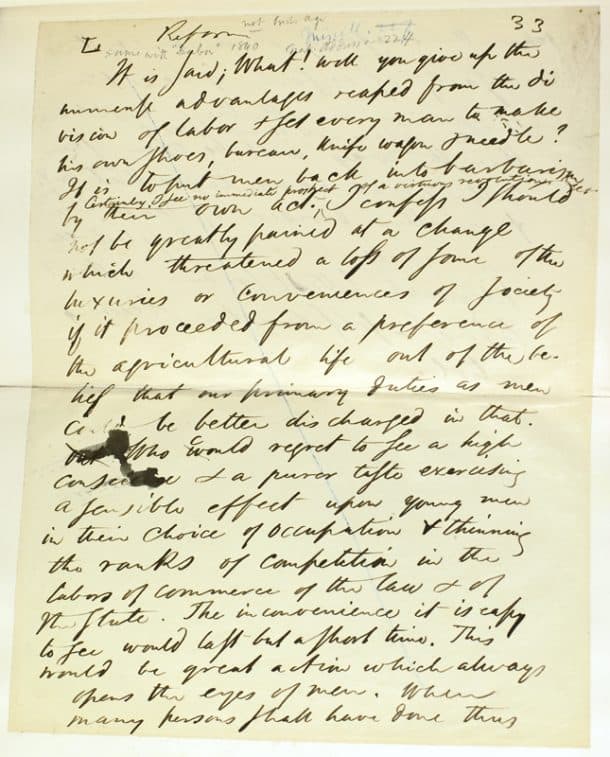 33
L Reform not
same with "Labor" 1840
It is said, What! will you give up the
immense advantages reaped from the di
vision of labor & set every man to make
his own shoes, bureau, knife wagon & needle?
It is to put men back into barbarism
Certainly I see no immediate prospect of a virtuous revolution
by their own act. I confess I should
not be greatly pained at a change
which threatened a loss of some of the
luxuries or conveniences of society
if it proceeded from a preference of
the agricultural life out of the be-
lief that our primary duties as men
could be better discharged in that.
but Who would regret to see a high
conscience & a purer taste exercising
a sensible effect upon young men
in their choice of occupation & thinning
the ranks of competition in the
labors of commerce of the law & of
the State. The inconvenience it is easy
to see would last but a short time. This
would be great action which always
opens the eyes of men. When
many persons shall have done this